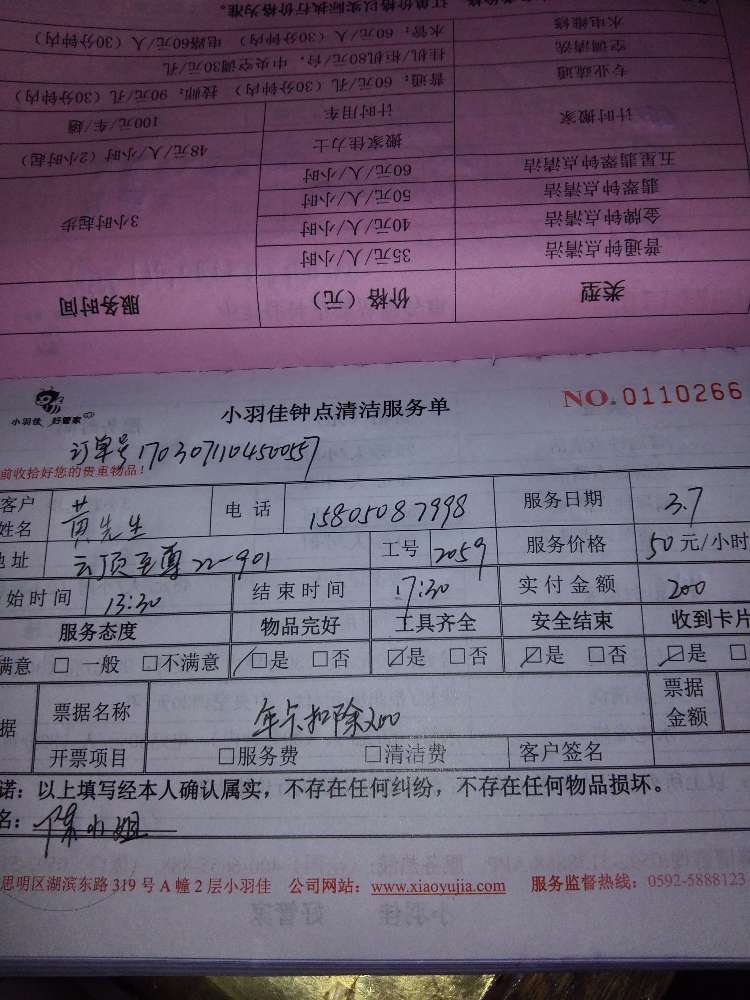 订单价格以实际执行价格为准。
水电维修 水管：60元/人（30分钟内） 电路60元/人（30分钟内）
空调清洗 挂机/柜机80元/台，中央空调30元/孔
专业疏通 普通：60元/孔（30分钟内） 技师：90元/孔（30分钟内）
计时搬家 计时用车 100元/车/趟
搬家佳力士 48元/人/小时（2小时起）
五星翡翠钟点清洁 60元/人/小时
翡翠钟点清洁 50元/人/小时
金牌钟点清洁 40元/人/小时 3小时起步
普通钟点清洁 35元/人/小时
类型 价格（元） 服务时间
小羽佳 好管家
小羽佳钟点清洁服务单
NO.0110266
订单号1703071104500557
前收拾好您的贵重物品！
客户姓名 黄先生 电话 15805087998 服务日期 3.7
地址 云顶至尊22-901 工号 2059 服务价格 50元/小时
始时间 13:30 结束时间 17:30 实付金额 200
服务态度 物品完好 工具齐全 安全结束 收到卡片
满意 □一般 □不满意 □是 □否 □是 □否 □是 □否 □是 □
据 票据名称 年卡扣除200 票据金额
开票项目 □服务费 □清洁费 客户签名
诺：以上填写经本人确认属实，不存在任何纠纷，不存在任何物品损坏。
名：陈小姐
思明区湖滨东路319号A幢2层小羽佳 公司网站：www.xiaoyujia.com 服务监督热线：0592-5888123